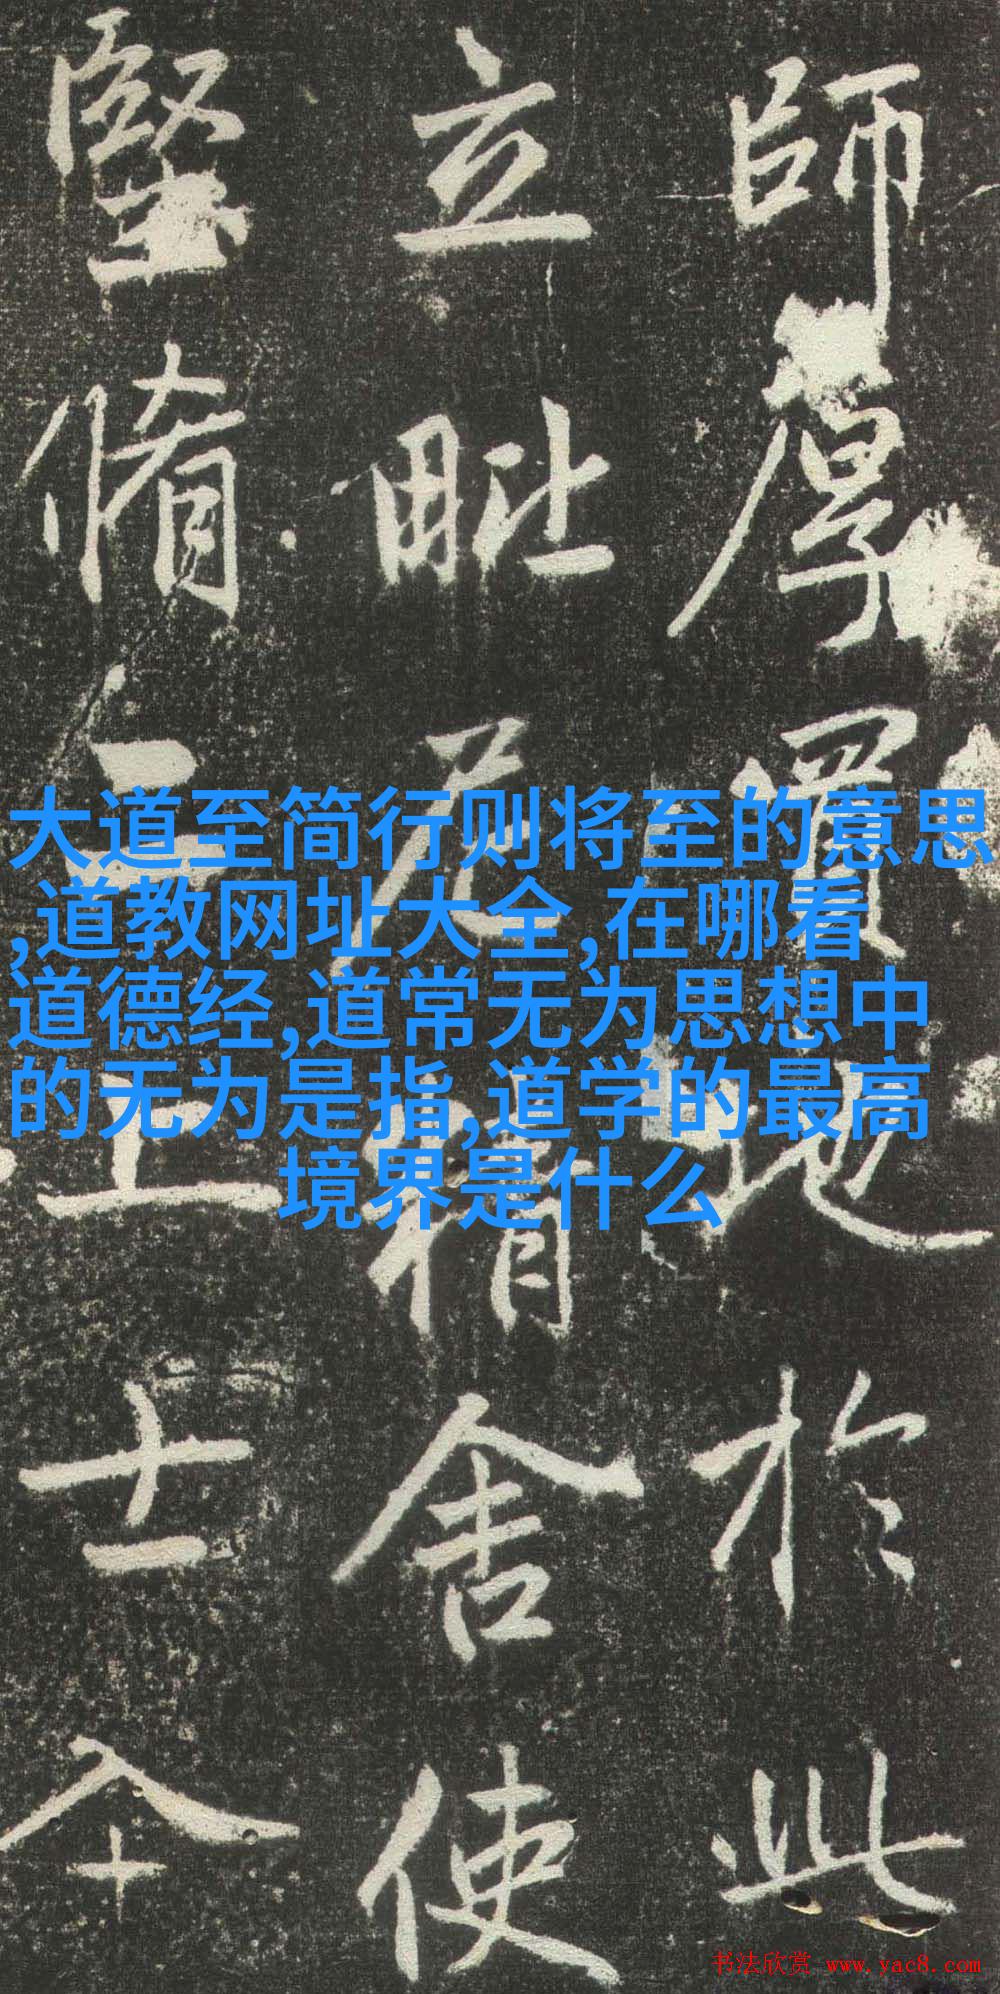 師厚地於此
立毗尼精舍使
堅脩上士
大道至简行则将至的意思
,道教网址大全,在哪看
道德经,道常无为思想中
的无为是指,道学的最高
境界是什么
书法欣赏 www.yac8.com